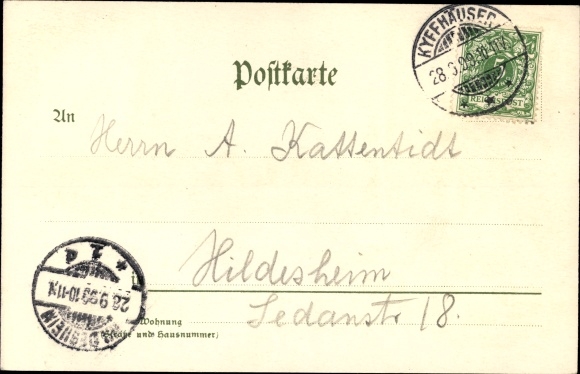 KYFFHÄUSER
28.9.99.10-11V.
REICHSPOST
Postkarte
An
Herrn A. Kattentidt
Hildesheim
Sedanstr 18.
Wohnung
(Straße und Hausnummer)
28.9.99.10-11N.